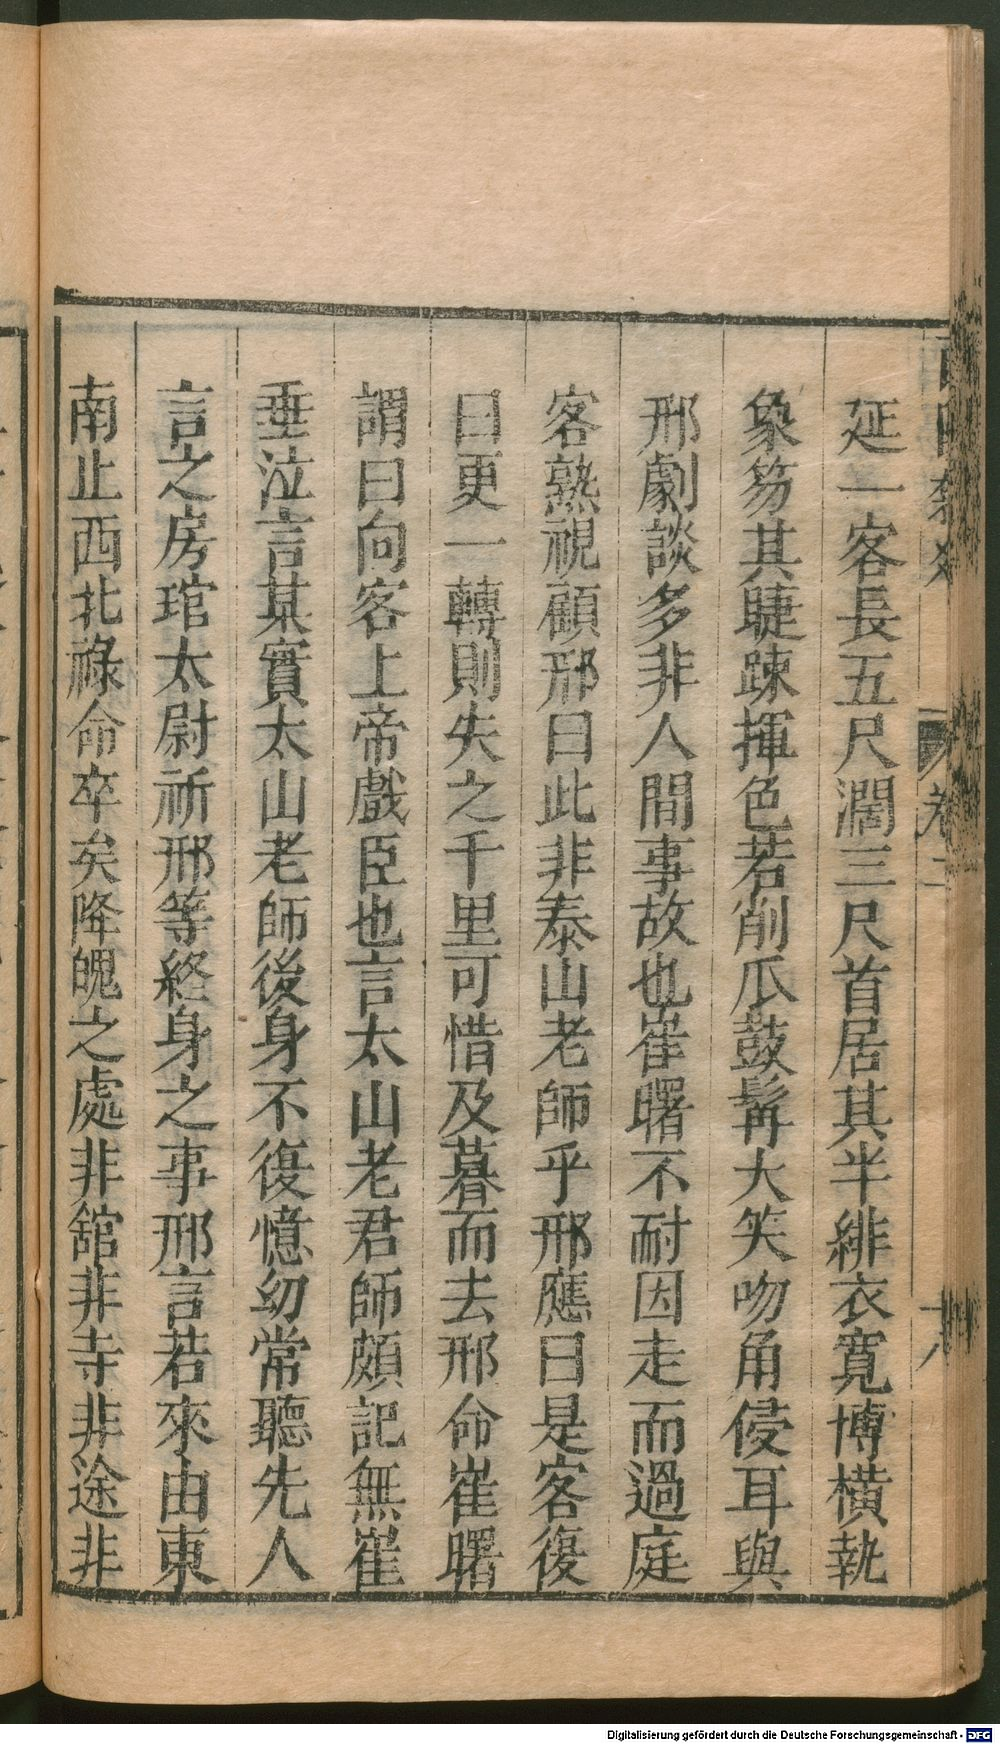 延一客長五尺濶三尺首居其半緋衣寬博橫執
象笏其睫疎揮色若削瓜鼓髯大笑吻角侵耳與
邢劇談多非人間事故也崔曙不耐因走而過庭
客熟視顧邢曰此非泰山老師乎邢應曰是客復
曰更一轉則失之千里可惜及暮而去邢命崔曙
謂曰向客上帝戲臣也言太山老君師頗記無崔
垂泣言某實太山老師後身不復憶幼常聽先人
言之房琯太尉祈邢等終身之事邢言若來由東
南止西北祿命卒矣降魄之處非舘非寺非途非
Digitalisierung gefördert durch die Deutsche Forschungsgemeinschaft - DFG